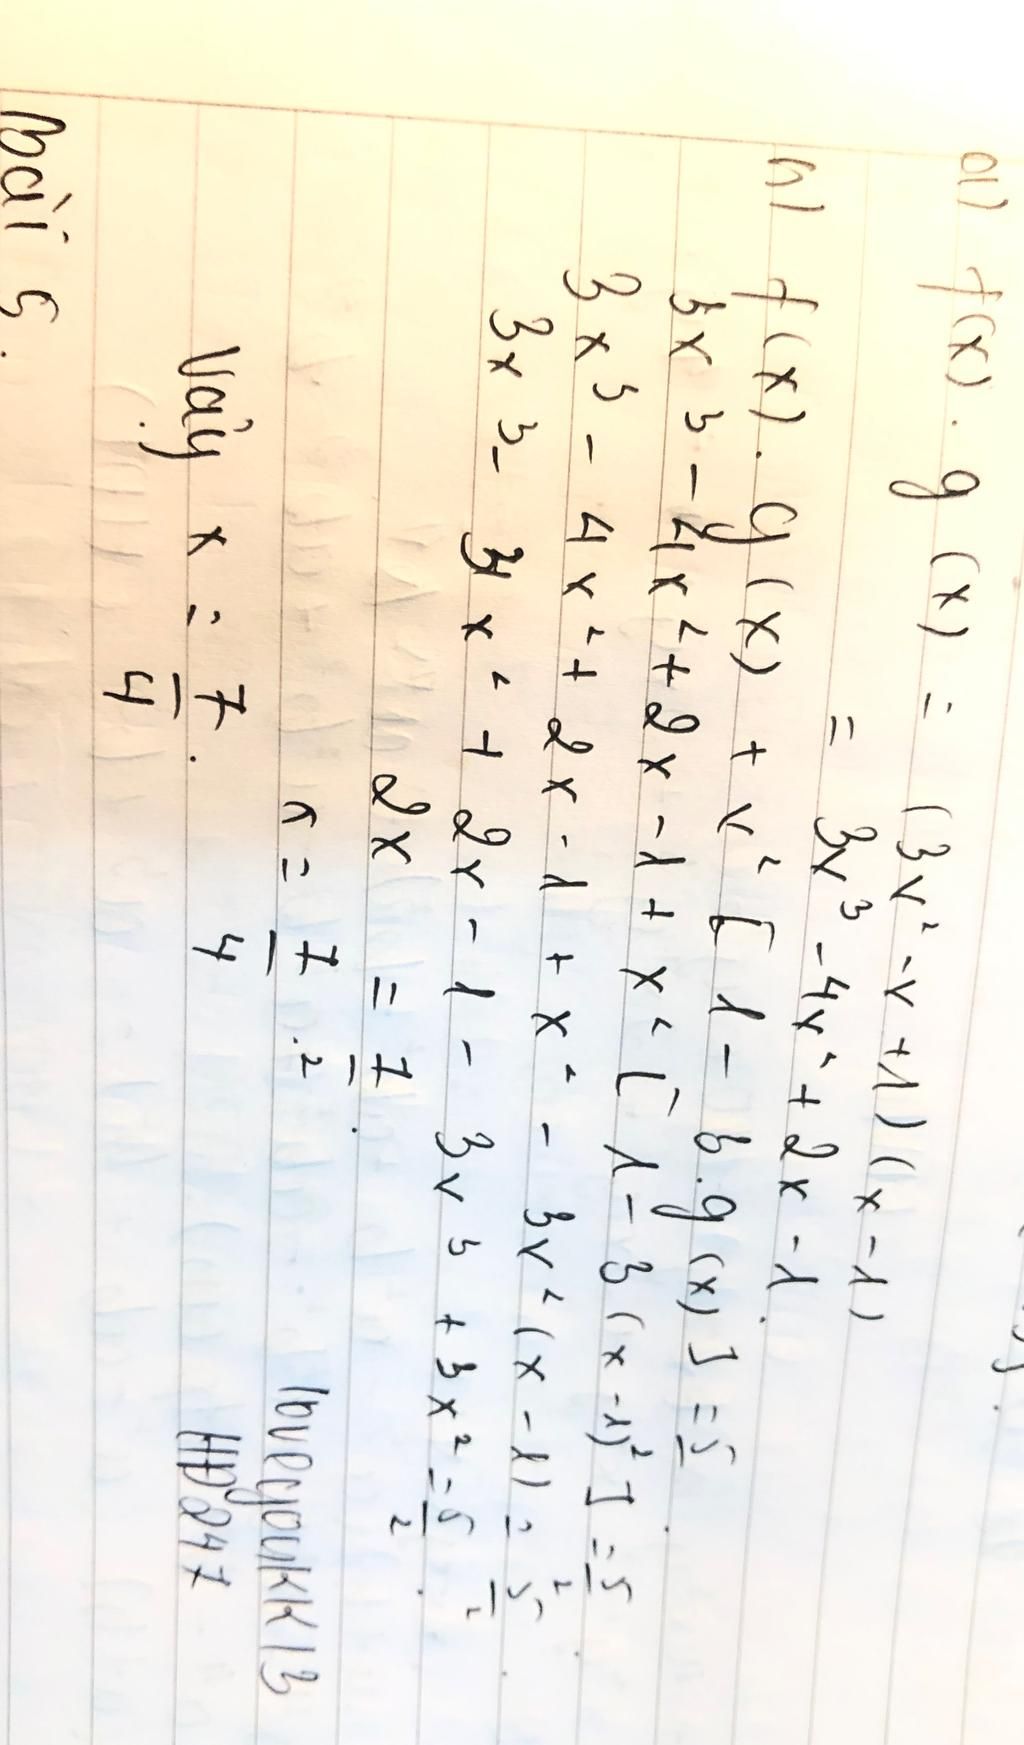 a) f(x).g(x) = (3x² - x + 1)(x - 1)
= 3x³ - 4x² + 2x - 1.
b) f(x).g(x) + x² [1 - 6.g(x)] = 5/2
3x³ - 4x² + 2x - 1 + x² [1 - 3(x - 1)] = 5/2
3x³ - 4x² + 2x - 1 + x² - 3x² (x - 1) = 5/2
3x³ - 3x² + 2x - 1 - 3x³ + 3x² = 5/2
2x = 7/2
x = 7/4
Vậy x = 7/4.
loveyoukk13
HD247
Bài 5.